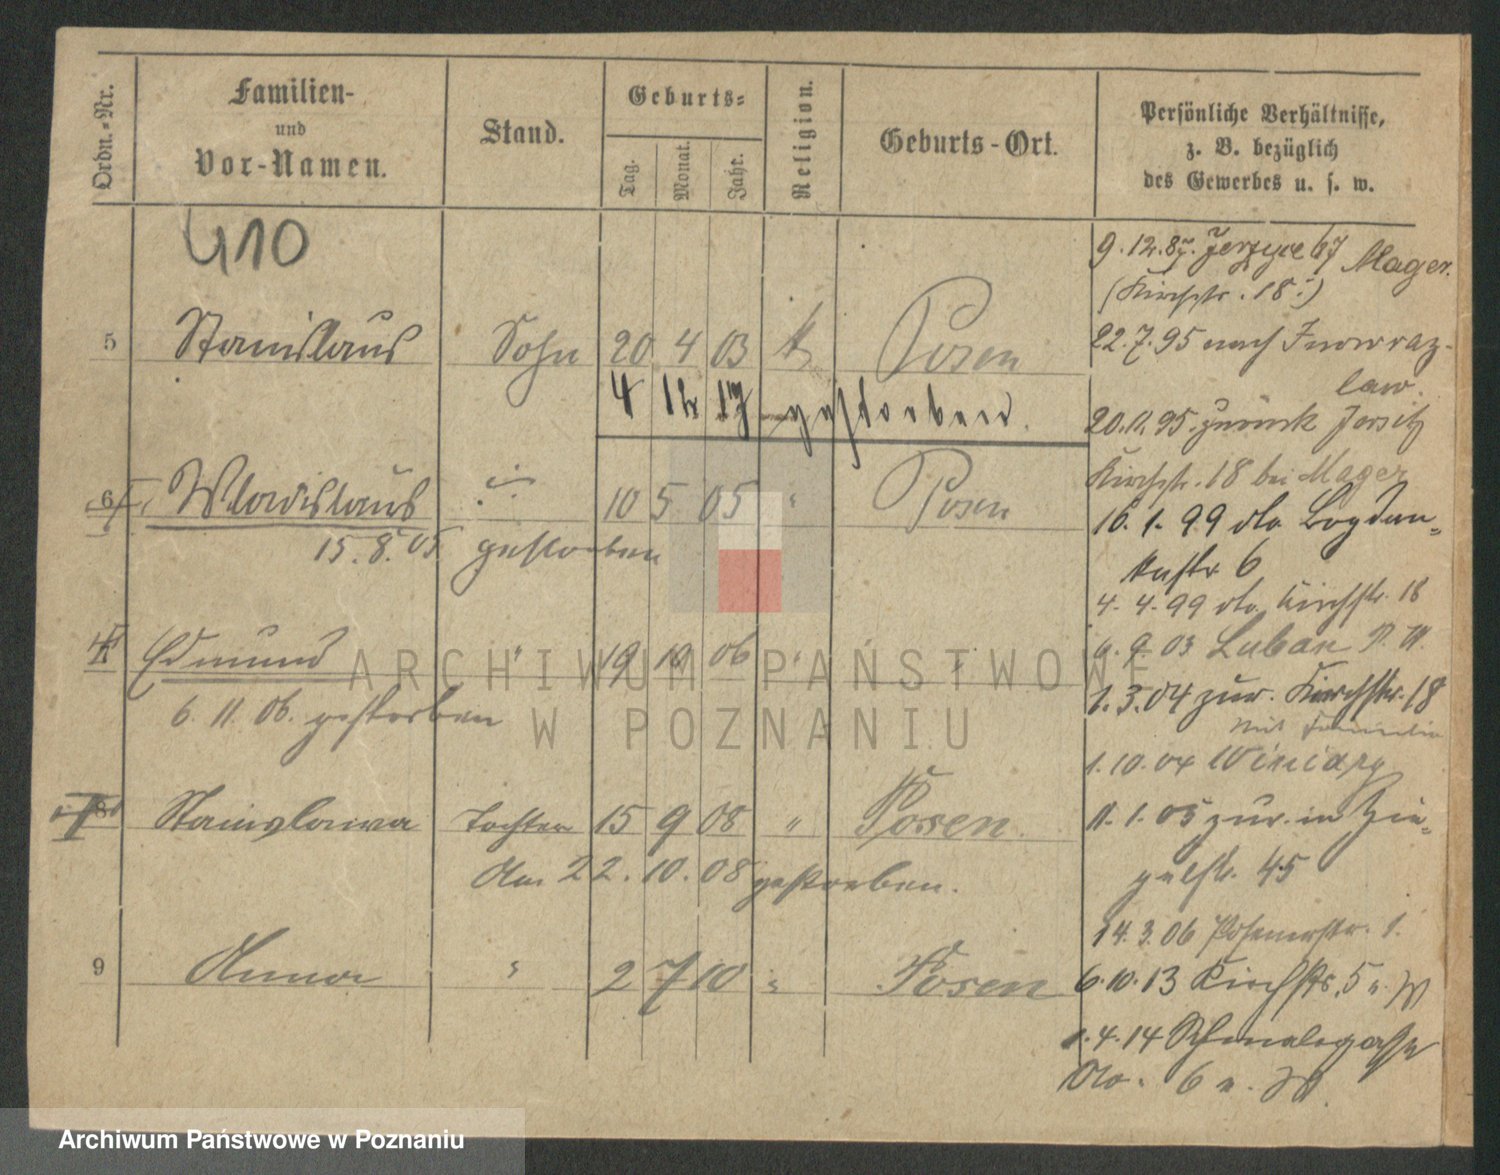 Ordn.-Nr. Familien- und Vor-Namen. Stand. Geburts- Tag. Monat. Jahr. Religion. Geburts-Ort. Persönliche Verhältnisse, z. B. bezüglich des Gewerbes u. s. w.
410
9. 12. 87. Jerzyce 67 Mager.
(Kirchstr. 18.)
5 Stanislaus Sohn 20 4 03 k Posen
22. 7. 95 nach Inowraz-
law.
4 12 17 gestorben.
20. 11. 95. zurück Jersitz
Kirchstr. 18 bei Mager
6 Wladislaus 10 5 05 " Posen
15. 8. 05 gestorben
16. 1. 99 do Bogdan-
kastr 6
4. 4. 99 do. Kirchstr. 18
Edmund " 19 10 06 " "
6. 9. 03 Luban
6. 11. 06. gestorben
1. 3. 04 zur. Kirchstr. 18
mit Familie
1. 10. 04 Winiary
8 Stanislawa Tochter 15 9 08 " Posen.
11. 1. 05 zur. in Zie-
gelstr. 45
Am 22. 10. 08 gestorben.
14. 3. 06 Posenerstr. 1.
9 Anna " 2 7 10 " Posen
6. 10. 13 Kirchstr. 5
1. 4. 14 Schmalegasse
do. 6
ARCHIWUM PAŃSTWOWE
W POZNANIU
Archiwum Państwowe w Poznaniu